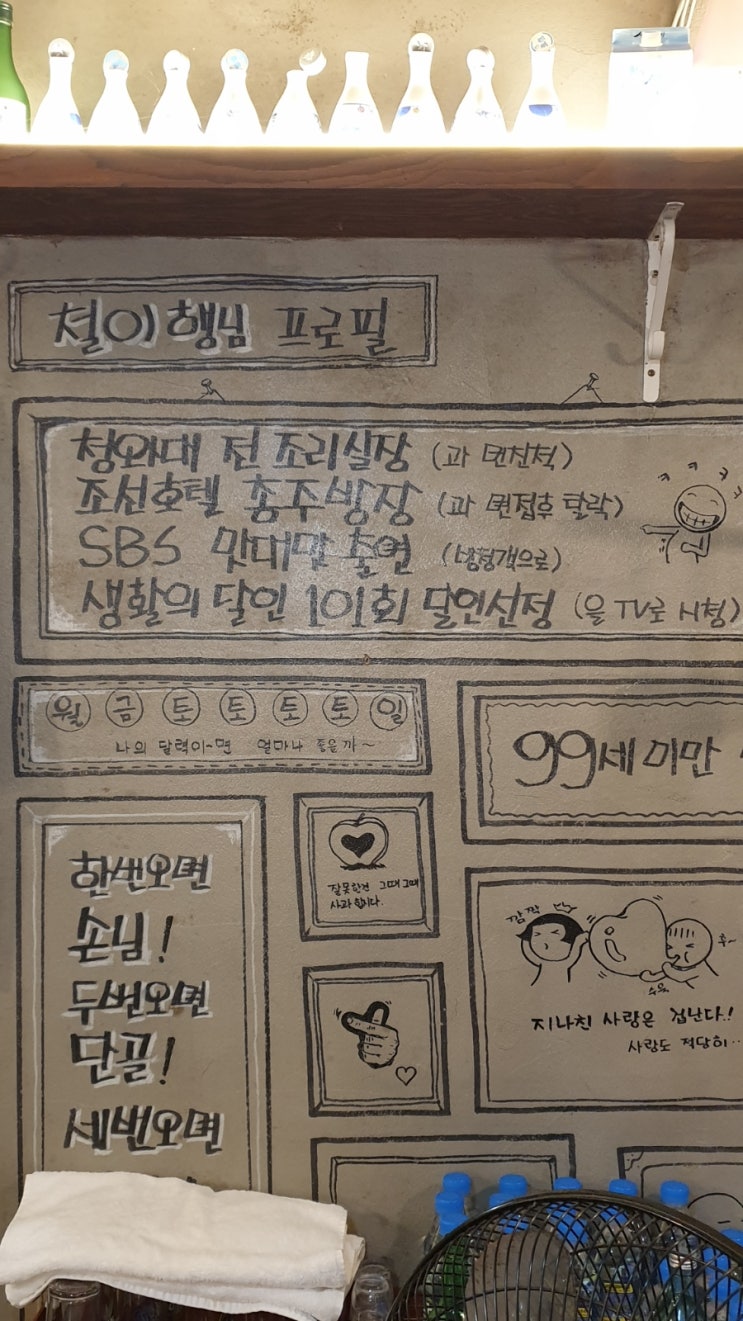 철이행님 프로필
청와대 전 조리실장 (과 먼친척)
조선호텔 총주방장 (과 면접후 탈락)
SBS 맛대맛 출연 (방청객으로)
생활의 달인 101회 달인선정 (을 TV로 시청)
월 금 토 토 토 토 일
나의 달력이~면 얼마나 좋을까~
99세 미만
한번오면
손님!
두번오면
단골!
세번오면
잘못한건 그때그때
사과 합니다.
깜짝
후~
슈욱
지나친 사랑은 겁난다.!
사랑도 적당히..